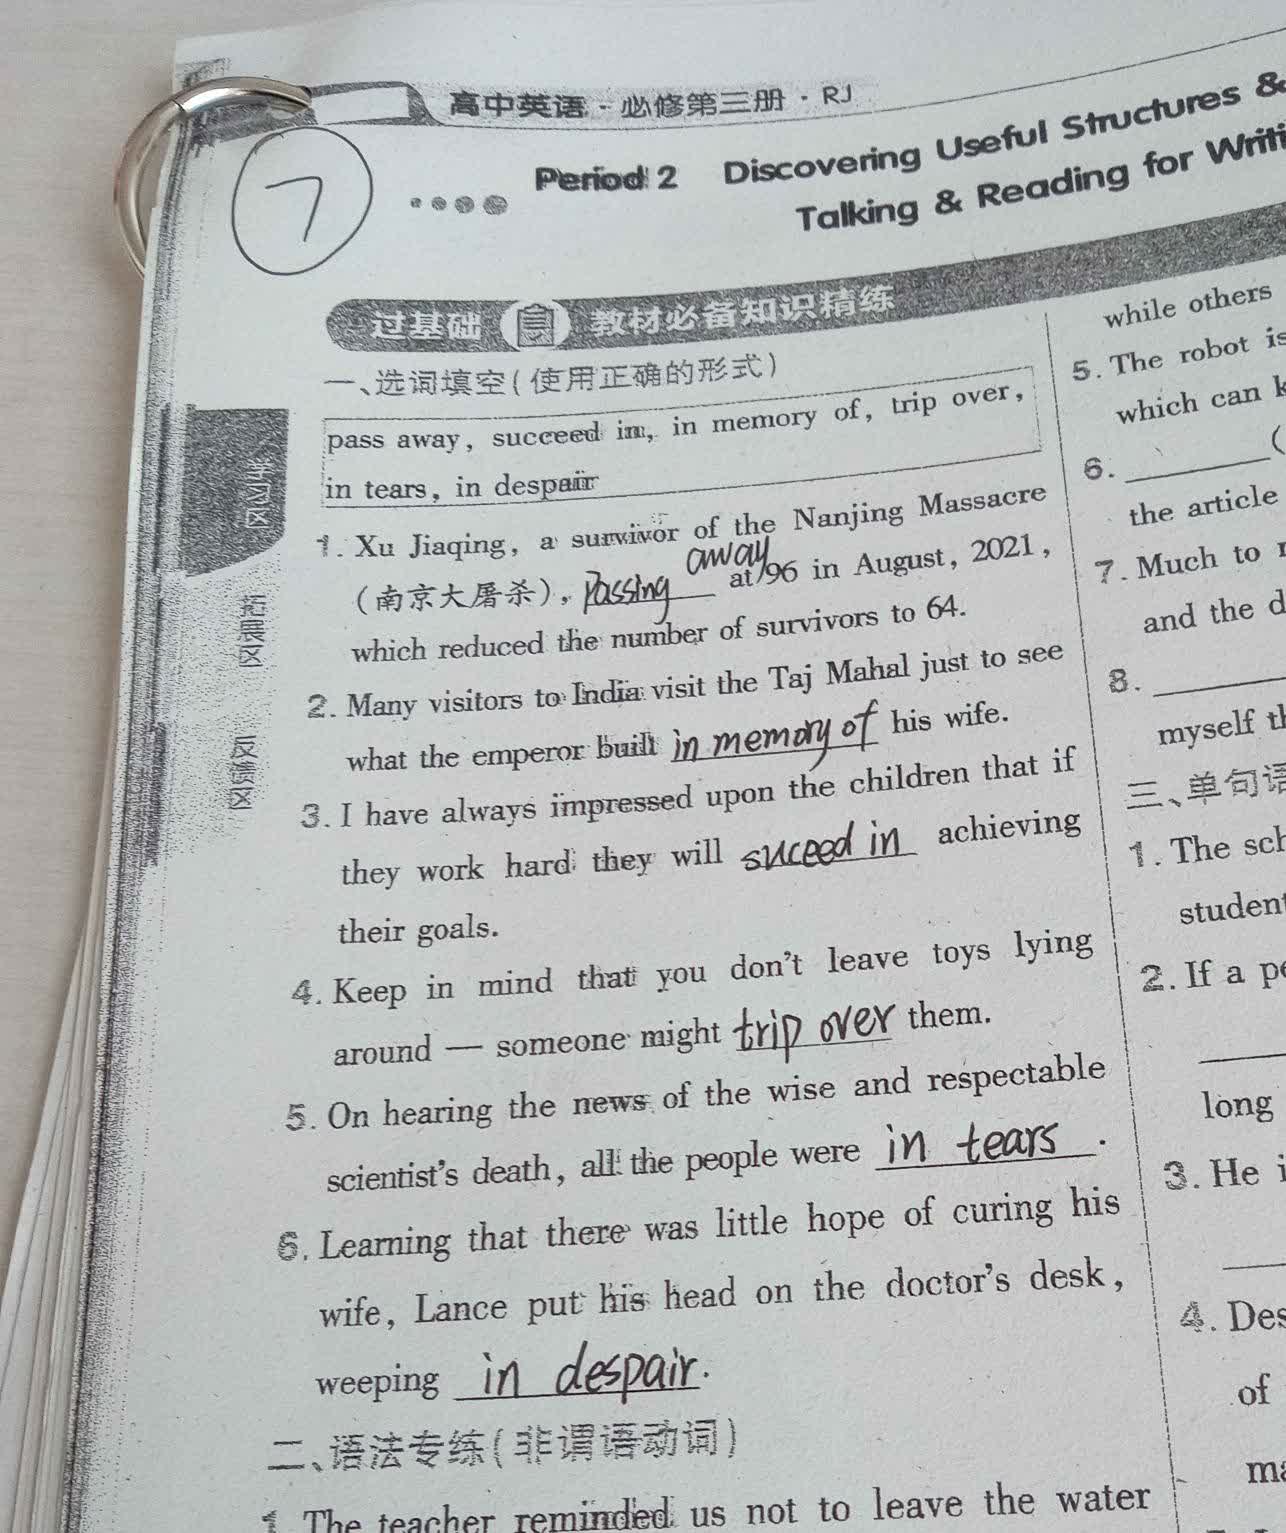 高中英语·必修第三册·RJ
7
Period 2 Discovering Useful Structures &
Talking & Reading for Writi
过基础 教材必备知识精练
一、选词填空(使用正确的形式)
pass away, succeed in, in memory of, trip over,
in tears, in despair
1. Xu Jiaqing, a survivor of the Nanjing Massacre
(南京大屠杀), passing away at 96 in August, 2021,
which reduced the number of survivors to 64.
2. Many visitors to India visit the Taj Mahal just to see
what the emperor built in memory of his wife.
3. I have always impressed upon the children that if
they work hard they will suceed in achieving
their goals.
4. Keep in mind that you don't leave toys lying
around — someone might trip over them.
5. On hearing the news of the wise and respectable
scientist's death, all the people were in tears.
6. Learning that there was little hope of curing his
wife, Lance put his head on the doctor's desk,
weeping in despair.
二、语法专练(非谓语动词)
1 The teacher reminded us not to leave the water
while others
5. The robot is
which can k
6. (
the article
7. Much to
and the d
8.
myself th
三、单句语
1. The sch
student
2. If a pe
long
3. He i
4. Des
of
ma